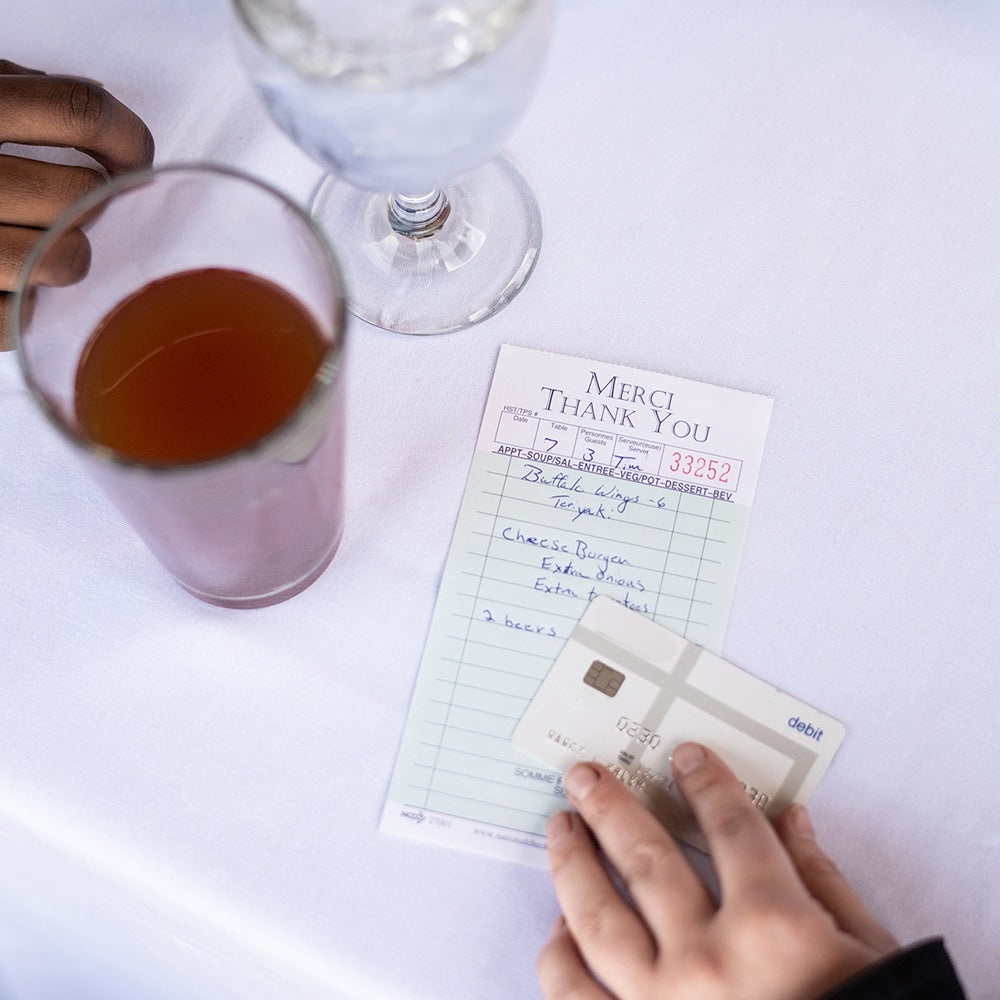 MERCI
THANK YOU
HST/TPS #
Date
Table
Personnes
Guests
Serveur(euse)
Server
7
3
Tim
33252
APPT-SOUP/SAL-ENTREE-VEG/POT-DESSERT-BEV
Buffalo Wings - 6
Teriyaki
Cheese Burger
Extra Onions
Extra
2 beers
debit
0230
SOMME